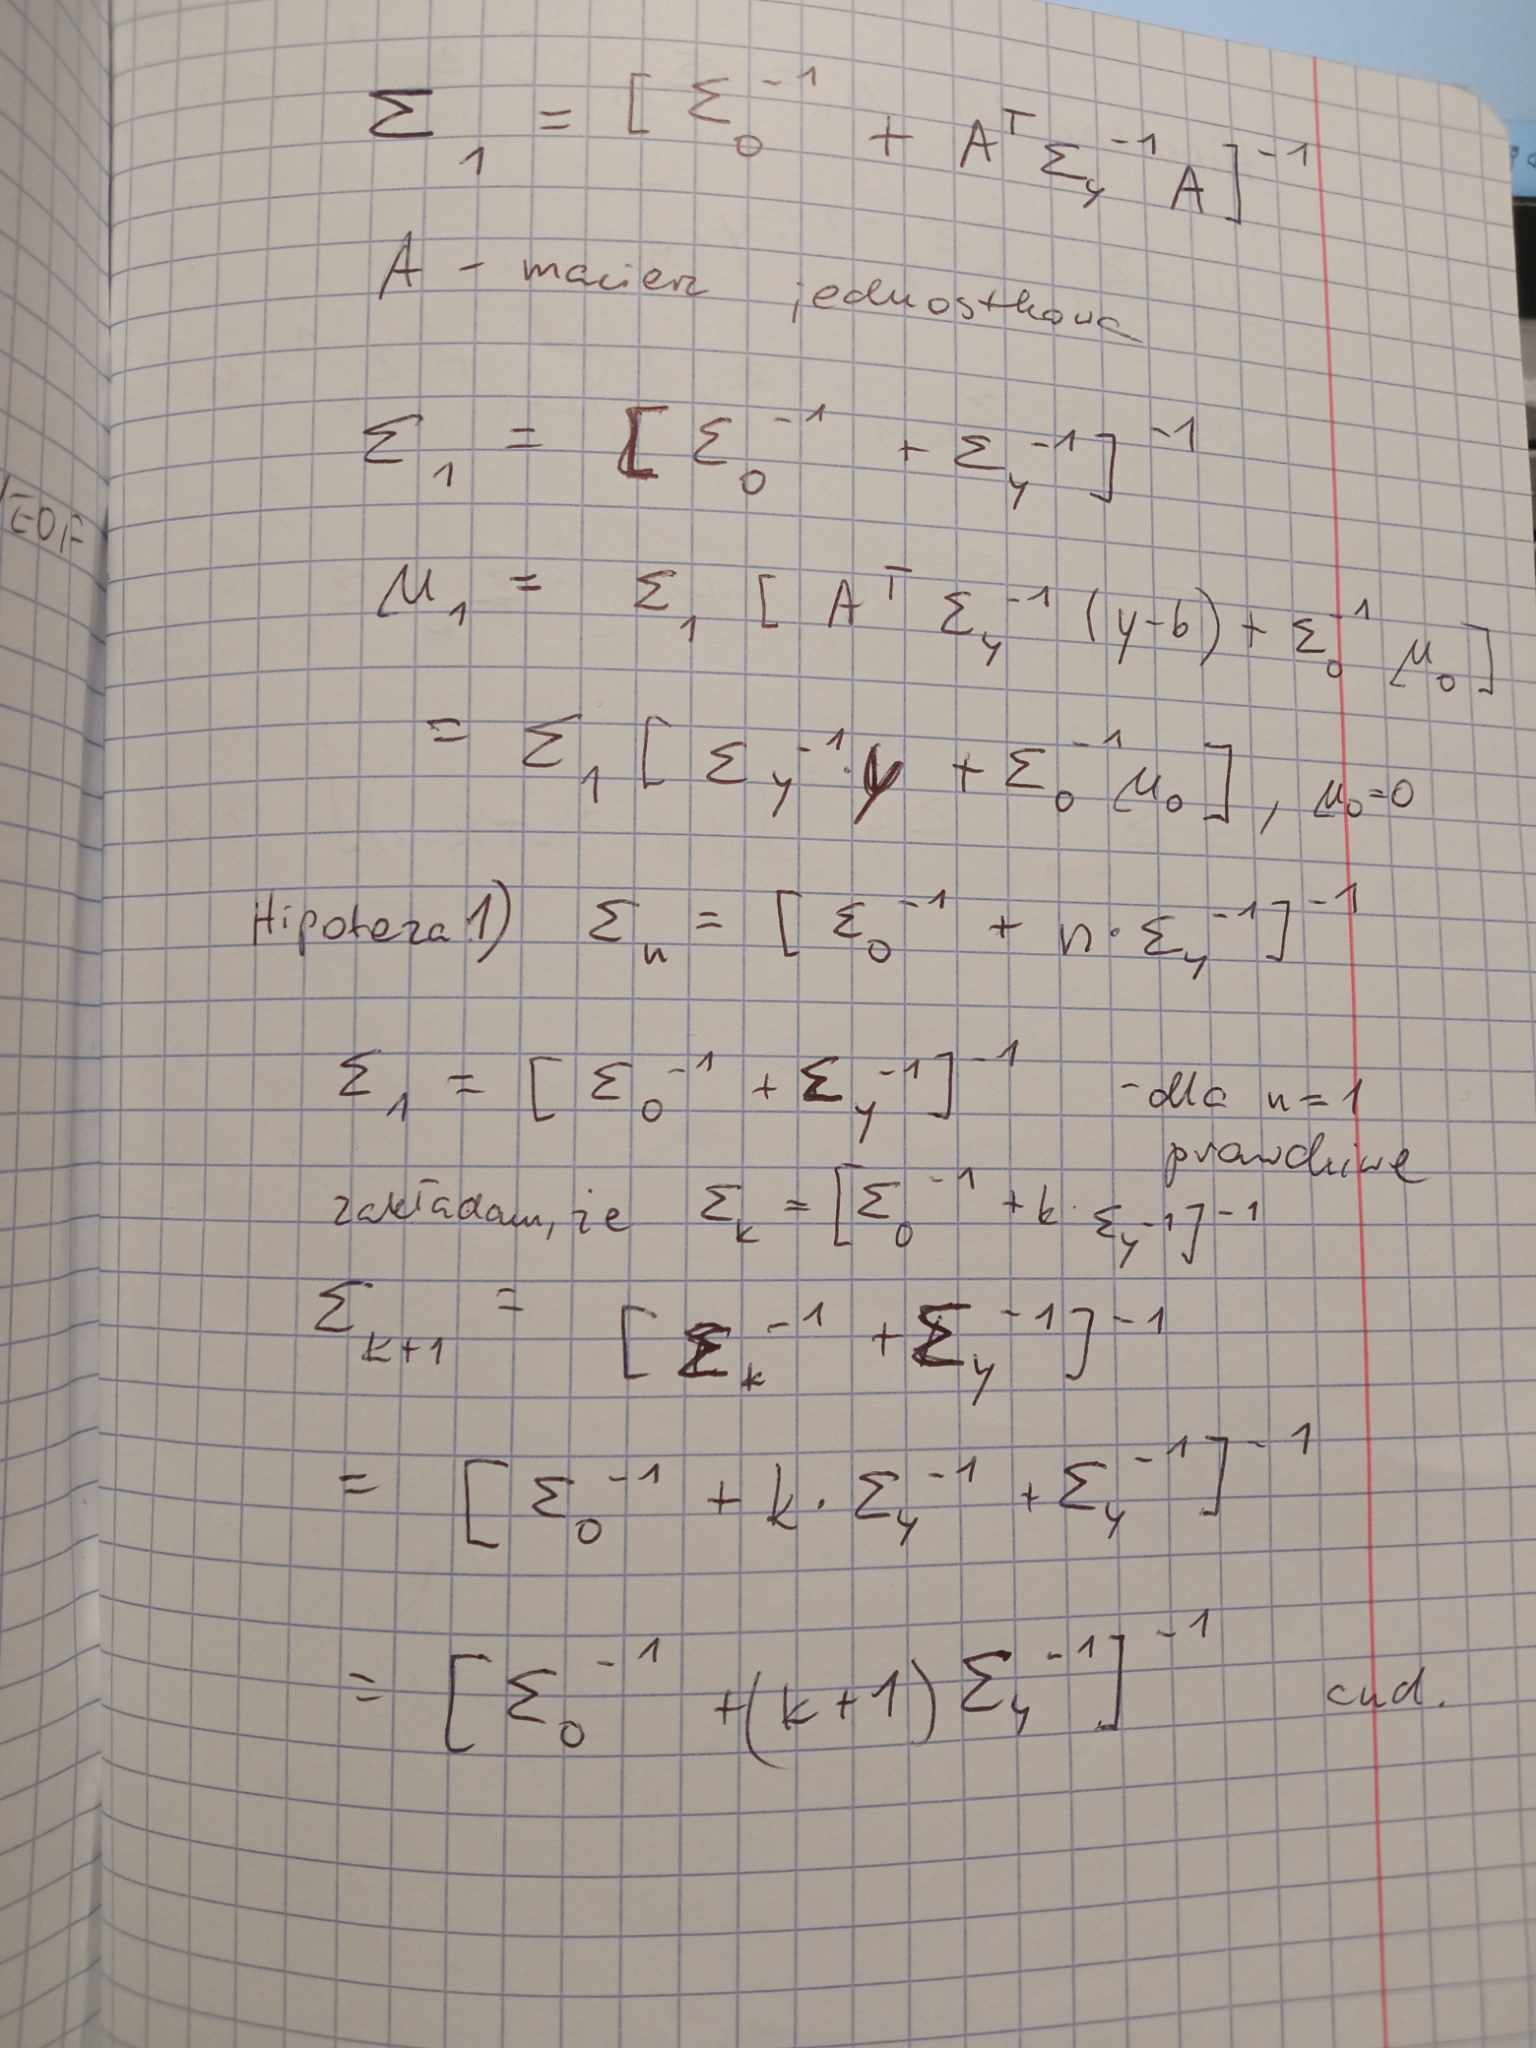 Σ₁ = [Σ₀⁻¹ + Aᵀ Σ_y⁻¹ A]⁻¹
A - macierz jednostkowa
Σ₁ = [Σ₀⁻¹ + Σ_y⁻¹]⁻¹
EOF
μ₁ = Σ₁ [Aᵀ Σ_y⁻¹ (y-b) + Σ₀⁻¹ μ₀]
= Σ₁ [Σ_y⁻¹·y + Σ₀⁻¹ μ₀], μ₀=0
Hipoteza 1) Σₙ = [Σ₀⁻¹ + n·Σ_y⁻¹]⁻¹
Σ₁ = [Σ₀⁻¹ + Σ_y⁻¹]⁻¹ - dla n=1
prawdziwe
zakładam, że Σₖ = [Σ₀⁻¹ + k·Σ_y⁻¹]⁻¹
Σₖ₊₁ = [Σₖ⁻¹ + Σ_y⁻¹]⁻¹
= [Σ₀⁻¹ + k·Σ_y⁻¹ + Σ_y⁻¹]⁻¹
= [Σ₀⁻¹ + (k+1) Σ_y⁻¹]⁻¹ cnd.